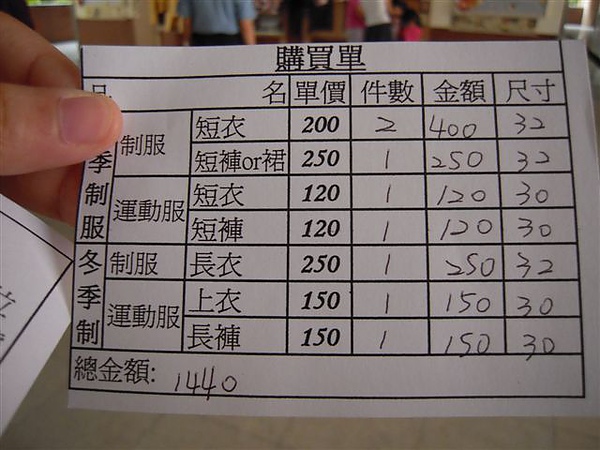 購買單
名 單價 件數 金額 尺寸
季制服 制服 短衣 200 2 400 32
短褲or裙 250 1 250 32
運動服 短衣 120 1 120 30
短褲 120 1 120 30
冬季制 制服 長衣 250 1 250 32
運動服 上衣 150 1 150 30
長褲 150 1 150 30
總金額: 1440